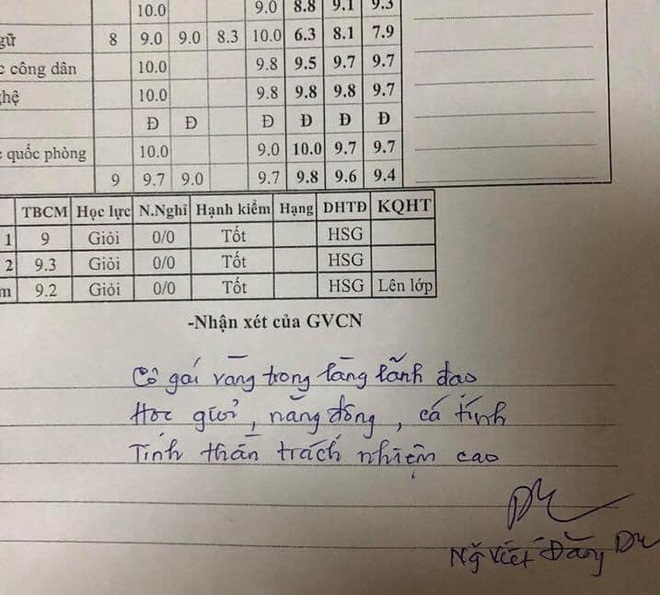 10.0 9.0 8.8 9.1 9.3
gữ 8 9.0 9.0 8.3 10.0 6.3 8.1 7.9
c công dân 10.0 9.8 9.5 9.7 9.7
ghệ 10.0 9.8 9.8 9.8 9.7
Đ Đ Đ Đ Đ Đ
c quốc phòng 10.0 9.0 10.0 9.7 9.7
9 9.7 9.0 9.7 9.8 9.6 9.4
TBCM Học lực N.Nghĩ Hạnh kiểm Hạng DHTĐ KQHT
1 9 Giỏi 0/0 Tốt HSG
2 9.3 Giỏi 0/0 Tốt HSG
m 9.2 Giỏi 0/0 Tốt HSG Lên lớp
-Nhận xét của GVCN
Cô gái vàng trong làng lãnh đạo
Học giỏi, năng động, cá tính
Tinh thần trách nhiệm cao
Ng Viết Đăng Du